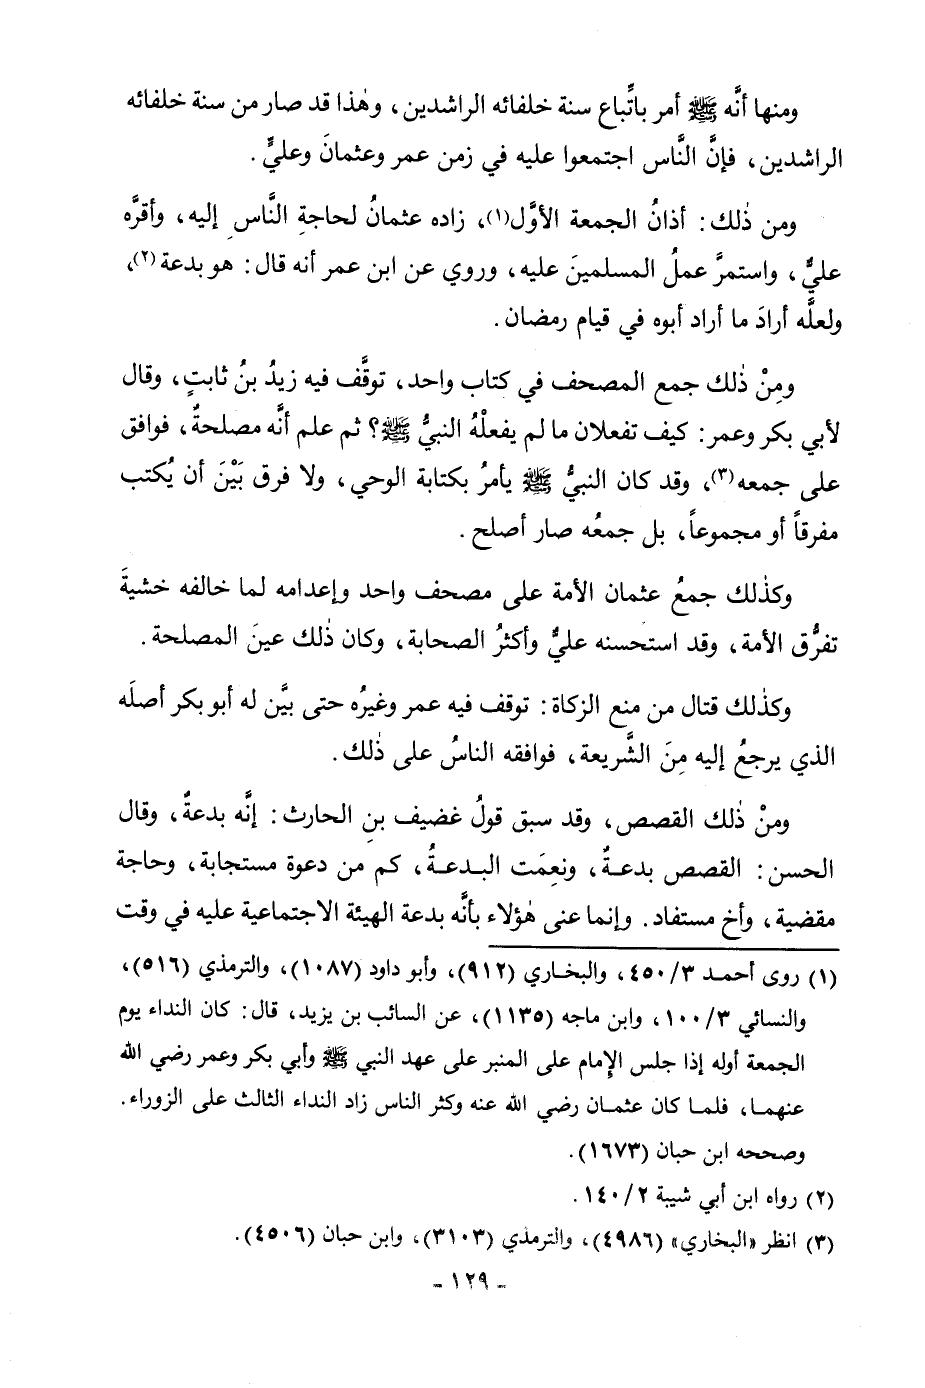 ومنها أنَّه ﷺ أمر باتِّباع سنة خلفائه الراشدين، وهٰذا قد صار من سنة خلفائه
الراشدين، فإنَّ النَّاس اجتمعوا عليه في زمن عمر وعثمانَ وعليٍّ.
ومن ذٰلك: أذانُ الجمعة الأوَّل(١)، زاده عثمانُ لحاجةِ النَّاسِ إليه، وأقرَّه
عليٌّ، واستمرَّ عملُ المسلمينَ عليه، وروي عن ابن عمر أنه قال: هو بدعة(٢)،
ولعلَّه أرادَ ما أراد أبوه في قيام رمضان.
ومِنْ ذٰلك جمع المصحف في كتاب واحد، توقَّف فيه زيدُ بنُ ثابتٍ، وقال
لأبي بكر وعمر: كيف تفعلان ما لم يفعلْهُ النبيُّ ﷺ؟ ثم علم أنَّه مصلحةٌ، فوافق
على جمعه(٣)، وقد كان النبيُّ ﷺ يأمرُ بكتابة الوحي، ولا فرق بَيْنَ أن يُكتب
مفرقاً أو مجموعاً، بل جمعُه صار أصلح.
وكذٰلك جمعُ عثمان الأمة على مصحف واحد وإعدامه لما خالفه خشيةَ
تفرُّق الأمة، وقد استحسنه عليٌّ وأكثرُ الصحابة، وكان ذٰلك عينَ المصلحة.
وكذٰلك قتال من منع الزكاة: توقف فيه عمر وغيرُه حتى بيَّن له أبو بكر أصلَه
الذي يرجعُ إليه مِنَ الشَّريعة، فوافقه الناسُ على ذٰلك.
ومنْ ذٰلك القصص، وقد سبق قولُ غضيف بنِ الحارث: إنَّه بدعةٌ، وقال
الحسن: القصص بدعـةٌ، ونعِمَت البـدعـةُ، كم من دعوة مستجابة، وحاجة
مقضية، وأخ مستفاد. وإنما عنى هٰؤلاء بأنَّه بدعة الهيئة الاجتماعية عليه في وقت
(١) روى أحمـد ٤٥٠/٣، والبخـاري (٩١٢)، وأبو داود (١٠٨٧)، والترمذي (٥١٦)،
والنسائي ١٠٠/٣، وابن ماجه (١١٣٥)، عن السائب بن يزيد، قال: كان النداء يوم
الجمعة أوله إذا جلس الإمام على المنبر على عهد النبي ﷺ وأبي بكر وعمر رضي الله
عنهمـا، فلمـا كان عثمـان رضي الله عنه وكثر الناس زاد النداء الثالث على الزوراء.
وصححه ابن حبان (١٦٧٣).
(٢) رواه ابن أبي شيبة ١٤٠/٢.
(٣) انظر «البخاري» (٤٩٨٦)، والترمذي (٣١٠٣)، وابن حبان (٤٥٠٦).
- ١٢٩ -